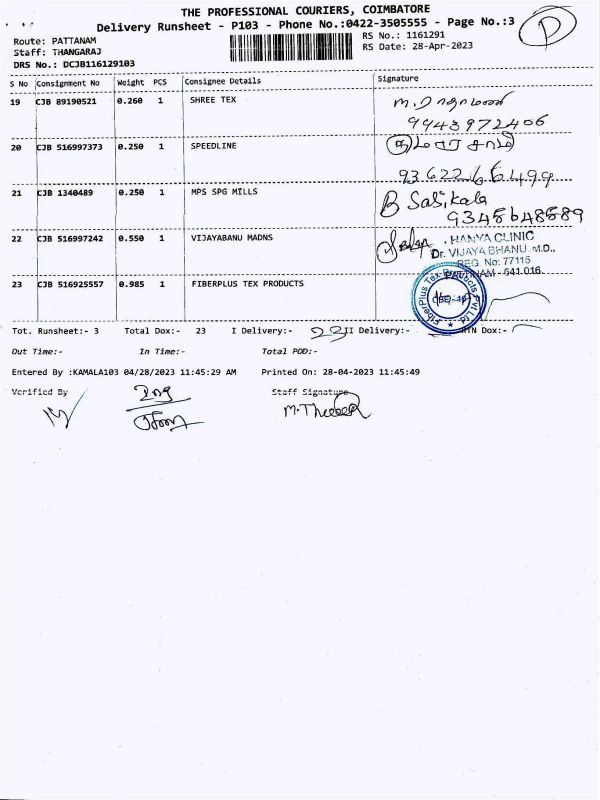 THE PROFESSIONAL COURIERS, COIMBATORE
Delivery Runsheet - P103 - Phone No.:0422-3505555 - Page No.:3
P
Route: PATTANAM
RS No.: 1161291
Staff: THANGARAJ
RS Date: 28-Apr-2023
DRS No.: DCJB116129103
S No Consignment No Weight PCS Consignee Details Signature
19 CJB 89190521 0.260 1 SHREE TEX
9943972406
20 CJB 516997373 0.250 1 SPEEDLINE குமாரசாமி
9362266499
21 CJB 1340489 0.250 1 MPS SPG MILLS B Sasikala
9345648589
22 CJB 516997242 0.550 1 VIJAYABANU MADNS HANYA CLINIC
Dr. VIJAYA BHANU M.D.,
REG. No: 77115
- 641 016.
23 CJB 516925557 0.985 1 FIBERPLUS TEX PRODUCTS FiberPlus Tex Products Pvt Ltd
Tot. Runsheet:- 3 Total Dox:- 23 I Delivery:- 23 II Delivery:- RTN Dox:-
Out Time:- In Time:- Total POD:-
Entered By :KAMALA103 04/28/2023 11:45:29 AM Printed On: 28-04-2023 11:45:49
Verified By Staff Signature